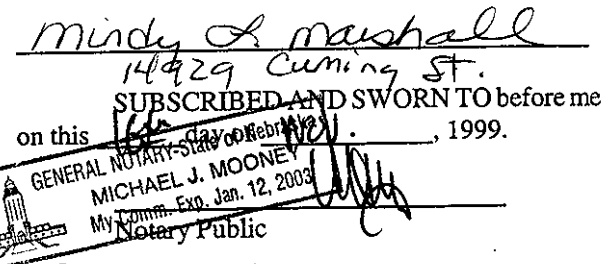 Mindy L. Marshall
14929 Cuming St.
SUBSCRIBED AND SWORN TO before me
on this 16th day of Nov., 1999.
GENERAL NOTARY-State of Nebraska
MICHAEL J. MOONEY
My Comm. Exp. Jan. 12, 2003
Notary Public